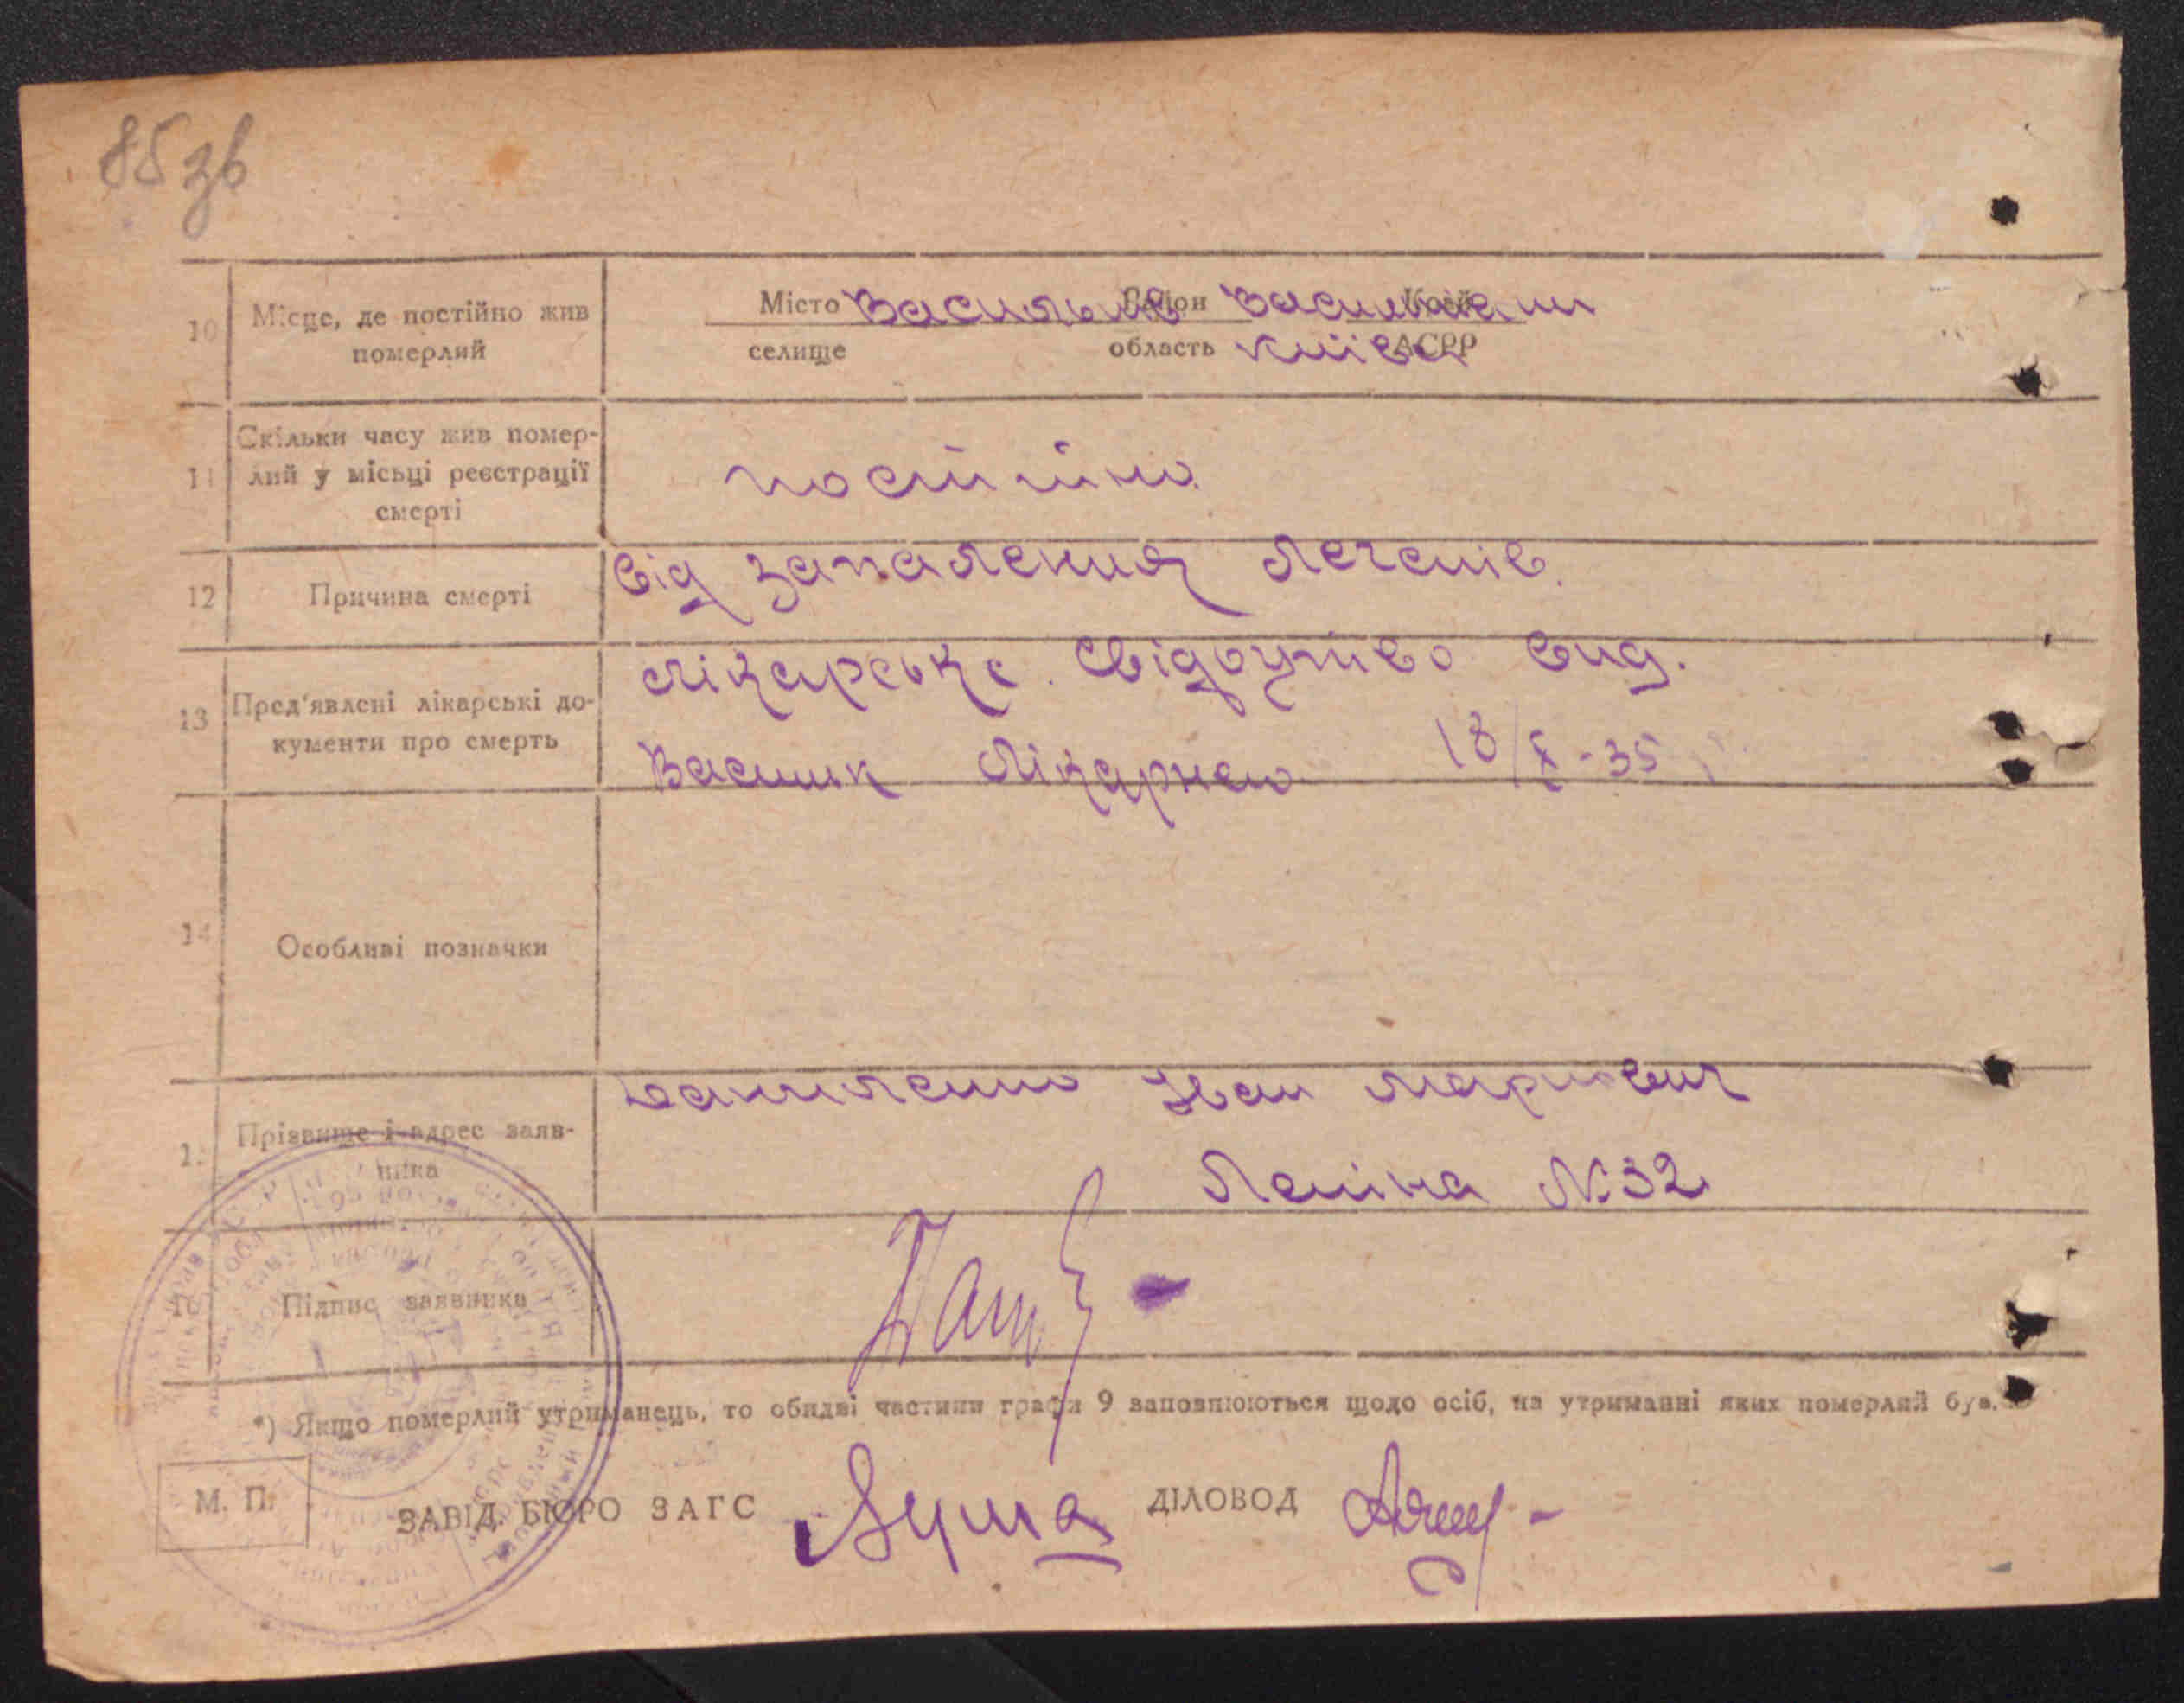 85 зв
10 Місце, де постійно жив померлий
Місто Васильків Район Васильківський Край
селище область Київськ АСРР
11 Скільки часу жив помер-
лий у місьці реєстрації
смерті
постійно
12 Причина смерті
від запалення легенів.
13 Пред'явлені лікарські до-
кументи про смерть
лікарське свідоцтво вид.
Васильк лікарнею 18/X-35
14 Особливі позначки
15 Прізвище і адрес заяв-
ника
Іван Маркович
Леніна №32
16 Підпис заявника
*) Якщо померлий утриманець, то обидві частини графи 9 заповнюються щодо осіб, на утриманні яких померлий був.
М. П.
ЗАВІД. БЮРО ЗАГС
ДІЛОВОД